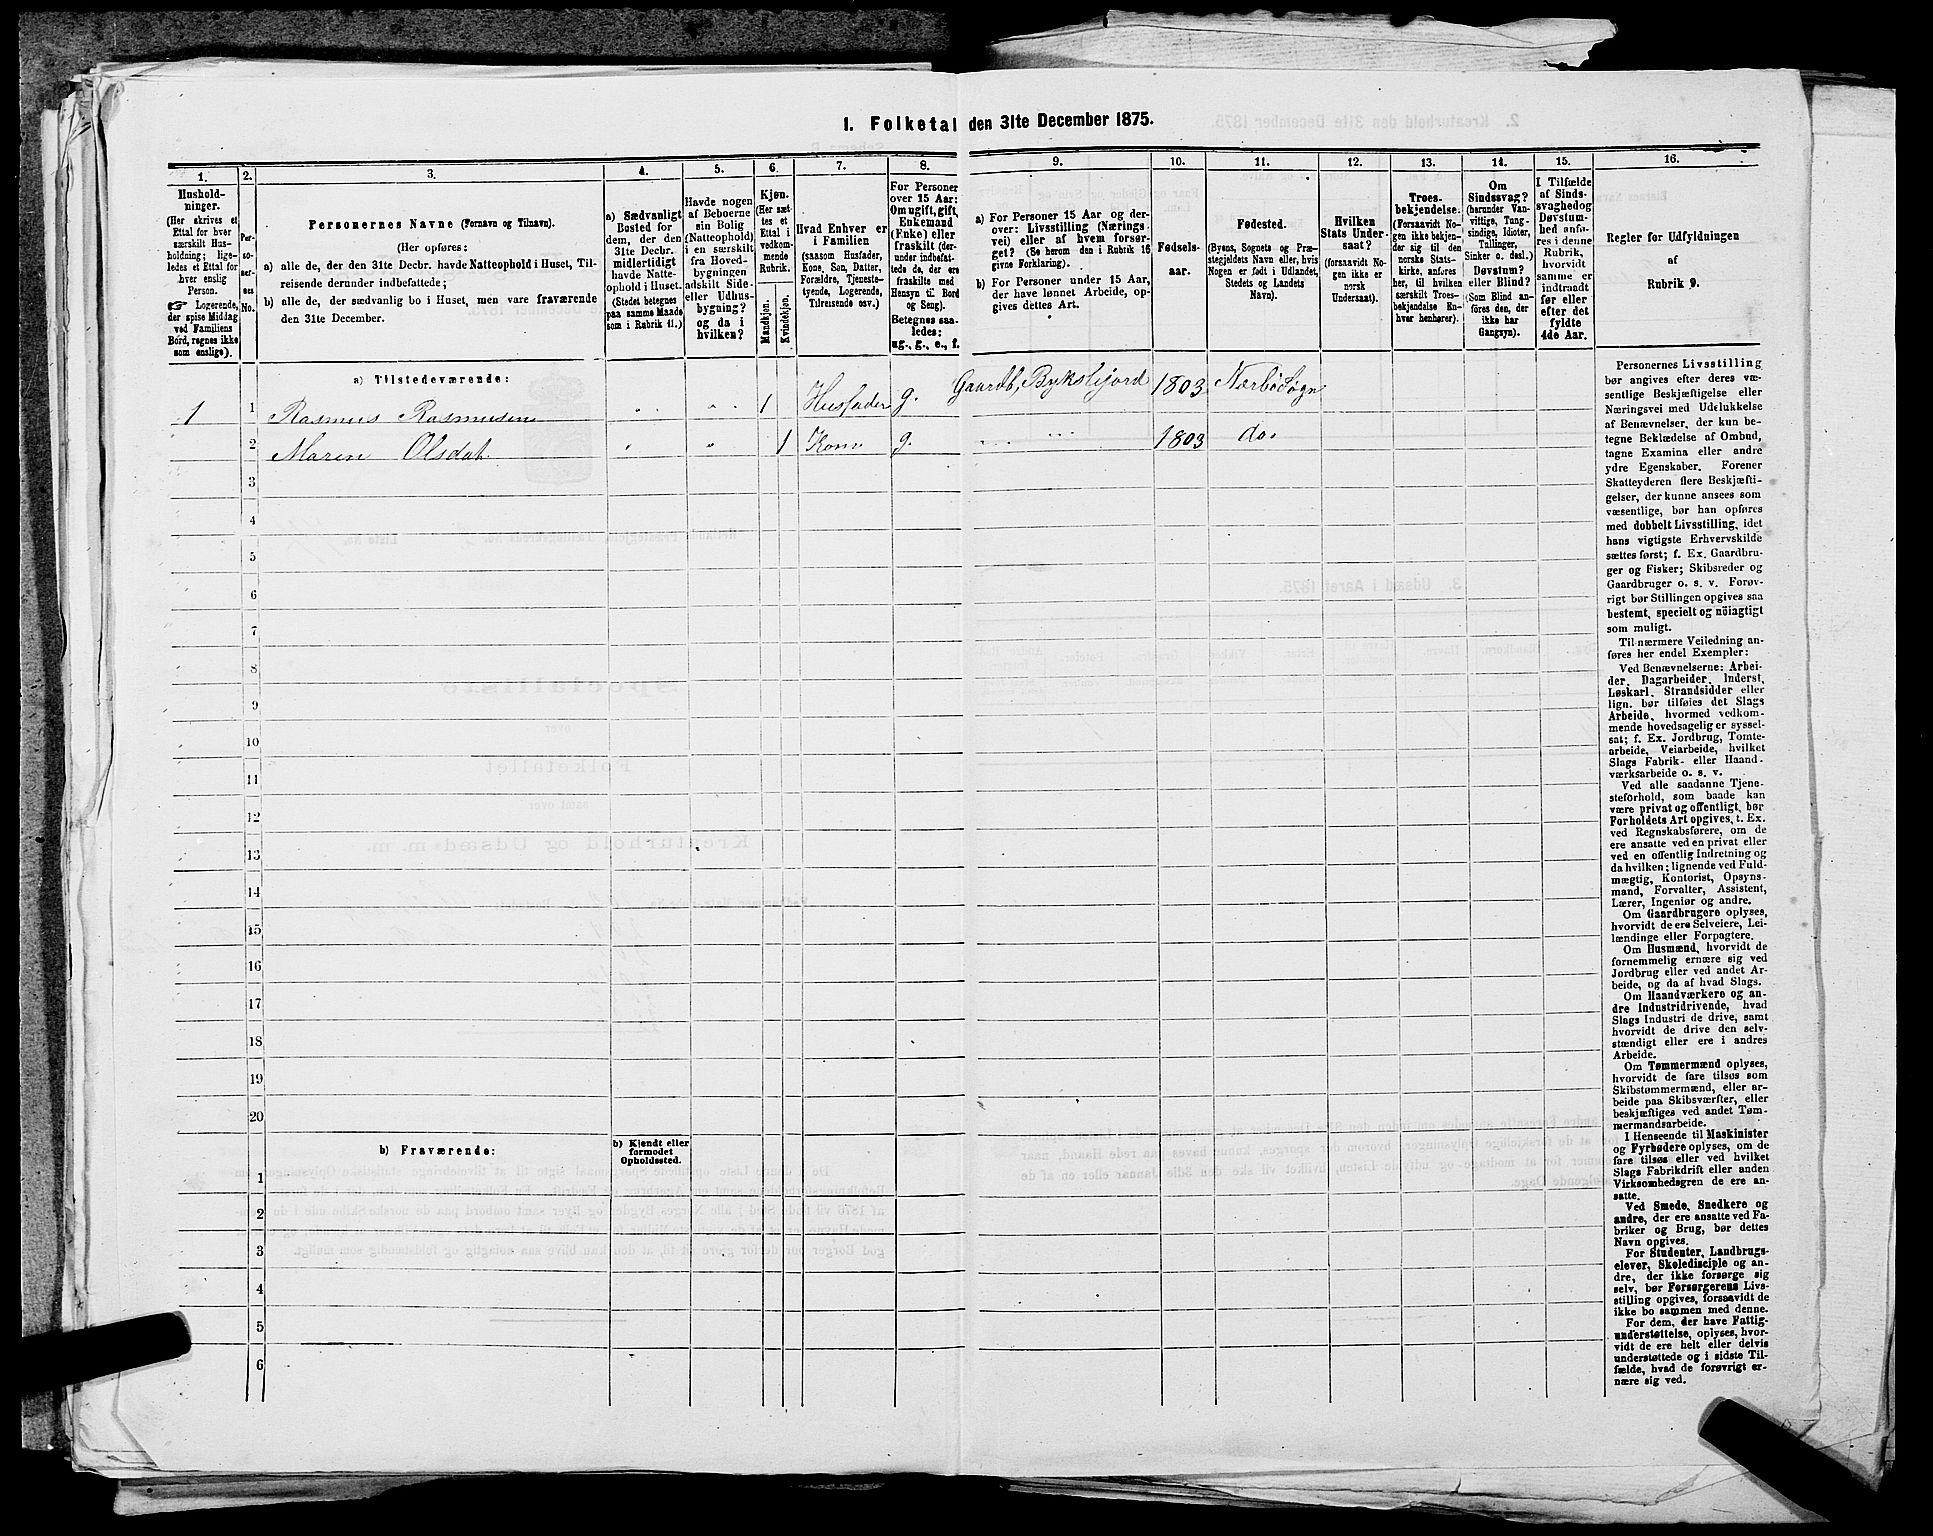 1. Folketal den 31te December 1875.
1.
Hushold-
ninger.
(Her skrives et
Ettal for hver
særskilt Hus-
holdning; lige-
ledes et Ettal for
hver enslig
Person.
☞ Logerende,
der spise Middag
ved Familiens
Bord, regnes ikke
som enslige).
2.
Per-
so-
ner-
nes
No.
3.
Personernes Navne (Fornavn og Tilnavn).
(Her opføres:
a) alle de, der den 31te Decbr. havde Natteophold i Huset, Til-
reisende derunder indbefattede;
b) alle de, der sædvanlig bo i Huset, men vare fraværende
den 31te December.
4.
a) Sædvanligt
Bosted for
dem, der den
31te Decbr.
midlertidigt
havde Natte-
ophold i Huset.
(Stedet betegnes
paa samme Maade
som i Rubrik 11.)
5.
Havde nogen
af Beboerne
sin Bolig
(Natteophold)
i en særskilt
fra Hoved-
bygningen
adskilt Side-
eller Udhus-
bygning?
og da i
hvilken?
6.
Kjøn.
(Her sæt-
tes et
Ettal i
vedkom-
mende
Rubrik.
Mandkjøn.
Kvindekjøn.
7.
Hvad Enhver er
i Familien
(saasom Husfader,
Kone, Søn, Datter,
Forældre, Tjeneste-
tyende, Logerende,
Tilreisende osv.)
8.
For Personer
over 15 Aar:
Om ugift, gift,
Enkemand
(Enke) eller
fraskilt (der-
under indbefat-
tede de, der ere
fraskilte med
Hensyn til Bord
og Seng).
Betegnes saa-
ledes:
ug., g., e., f.
9.
a) For Personer 15 Aar og der-
over: Livsstilling (Nærings
vei) eller af hvem forsør-
get? (Se herom den i Rubrik 16
givne Forklaring).
b) For Personer under 15 Aar,
der have lønnet Arbeide, op-
gives dettes Art.
10.
Fødsels-
aar.
11.
Fødested.
(Byens, Sognets og Præ-
stegjeldets Navn eller, hvis
Nogen er født i Udlandet,
Stedets og Landets
Navn).
12.
Hvilken
Stats Under-
saat?
(forsaavidt No-
gen ikke er
norsk
Undersaat).
13.
Troes-
bekjendelse.
(Forsaavidt No-
gen ikke bekjen-
der sig til den
norske Stats-
kirke, anføres
her, til hvilken
særskilt Troes-
bekjendelse En-
hver henhører).
14.
Om
Sindssvag?
(herunder Van-
vittige, Tung-
sindige, Idioter,
Tullinger,
Sinker o. desl.)
Døvstum?
eller Blind?
(Som Blind an-
føres den, der
ikke har
Gangsyn).
15.
I Tilfælde
af Sinds-
svaghed og
Døvstum-
hed anfø-
res i denne
Rubrik,
hvorvidt
samme er
indtraadt
før eller
efter det
fyldte
4de Aar.
16.
Regler for Udfyldningen
af
Rubrik 9.
a) Tilstedeværende:
1 1 Rasmus Rasmusen „ „ 1 Husfader g. Gaardb, Byksefjord 1803 Nærbø Sogn
2 Maren Olsdat „ „ 1 Kone g. 1803 do.
3
4
5
6
7
8
9
10
11
12
13
14
15
16
17
18
19
20
b) Fraværende:
b) Kjendt eller
formodet
Opholdssted.
1
2
3
4
5
6
Personernes Livsstilling
bør angives efter deres væ-
sentlige Beskjæftigelse eller
Næringsvei med Udelukkelse
af Benævnelser, der kun be-
tegne Beklædelse af Ombud,
tagne Examina eller andre
ydre Egenskaber. Forener
Skatteyderen flere Beskjæfti-
gelser, der kunne ansees som
væsentlige, bør han opføres
med dobbelt Livsstilling, idet
hans vigtigste Erhvervskilde
sættes først; f. Ex. Gaardbru-
ger og Fisker; Skibsreder og
Gaardbruger o. s. v. Forøv-
rigt bør Stillingen opgives saa
bestemt, specielt og nøiagtigt
som muligt.
Til nærmere Veiledning an-
føres her endel Exempler:
Ved Benævnelserne: Arbei-
der, Dagarbeider, Inderst,
Løskarl, Strandsidder eller
lign. bør tilføies det Slags
Arbeide, hvormed vedkom-
mende hovedsagelig er syssel-
sat; f. Ex. Jordbrug, Tomte-
arbeide, Veiarbeide, hvilket
Slags Fabrik- eller Haand-
værksarbeide o. s. v.
Ved alle saadanne Tjene-
steforhold, som baade kan
være privat og offentligt, bør
Forholdets Art opgives, t. Ex.
ved Regnskabsførere, om de
ere ansatte ved en privat eller
ved en offentlig Indretning og
da hvilken; lignende ved Fuld-
mægtig, Kontorist, Opsyns-
mand, Forvalter, Assistent,
Lærer, Ingeniør og andre.
Om Gaardbrugere oplyses,
hvorvidt de ere Selveiere, Lei-
lændinge eller Forpagtere.
Om Husmænd, hvorvidt de
fornemmelig ernære sig ved
Jordbrug eller ved andet Ar-
beide, og da af hvad Slags.
Om Haandværkere og an-
dre Industridrivende, hvad
Slags Industri de drive, samt
hvorvidt de drive den selv-
stændigt eller ere i andres
Arbeide.
Om Tømmermænd oplyses,
hvorvidt de fare tilsøs som
Skibstømmermænd, eller ar-
beide paa Skibsværfter, eller
beskjæftiges ved andet Tøm-
mermandsarbeide.
I Henseende til Maskinister
og Fyrbødere oplyses, om de
fare tilsøs eller ved hvilket
Slags Fabrikdrift eller anden
Virksomhedsgren de ere an-
satte.
Ved Smede, Snedkere og
andre, der ere ansatte ved Fa-
briker og Brug, bør dettes
Navn opgives.
For Studenter, Landbrugs-
elever, Skoledisciple og an-
dre, der ikke forsørge sig
selv, bør Forsørgerens Livs-
stilling opgives, forsaavidt de
ikke bo sammen med denne.
For dem, der have Fattig-
understøttelse, oplyses, hvor-
vidt de ere helt eller delvis
understøttede og i sidste Til-
fælde, hvad de forøvrigt er-
nære sig ved.